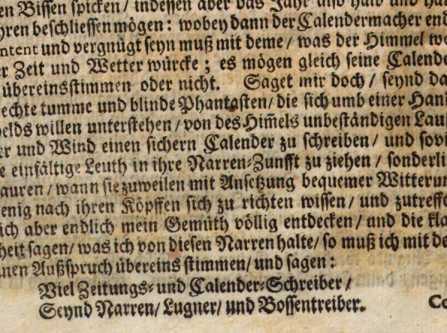 en Bissen spicken / indessen aber das Jahr also halb und ha
hren beschliessen mögen: wobey dann der Calendermacher en
ntent und vergnügt seyn muß mit deme / was der Himmel we
er Zeit und Wetter würcke; es mögen gleich seine Calende
übereinsstimmen oder nicht. Saget mir doch / seynd da
echte tumme und blinde Phantasten / die sich umb einer Han
elds willen unterstehen / von des Him̃els unbeständigen Lau
er und Wind einen sichern Calender zu schreiben / und sovi
e einfältige Leuth in ihre Narren-Zunfft zu ziehen / sonderli
auren / wann sie zuweilen mit Ansetzung bequemer Witterun
enig nach ihren Köpffen sich zu richten wissen / und zutreffe
ich aber endlich mein Gemüth völlig entdecken / und die kla
heit sagen / was ich von diesen Narren halte / so muß ich mit de
nen Außspruch übereins stimmen / und sagen:
Viel Zeitungs- und Calender-Schreiber /
Seynd Narren / Lugner / und Bossentreiber.
Co